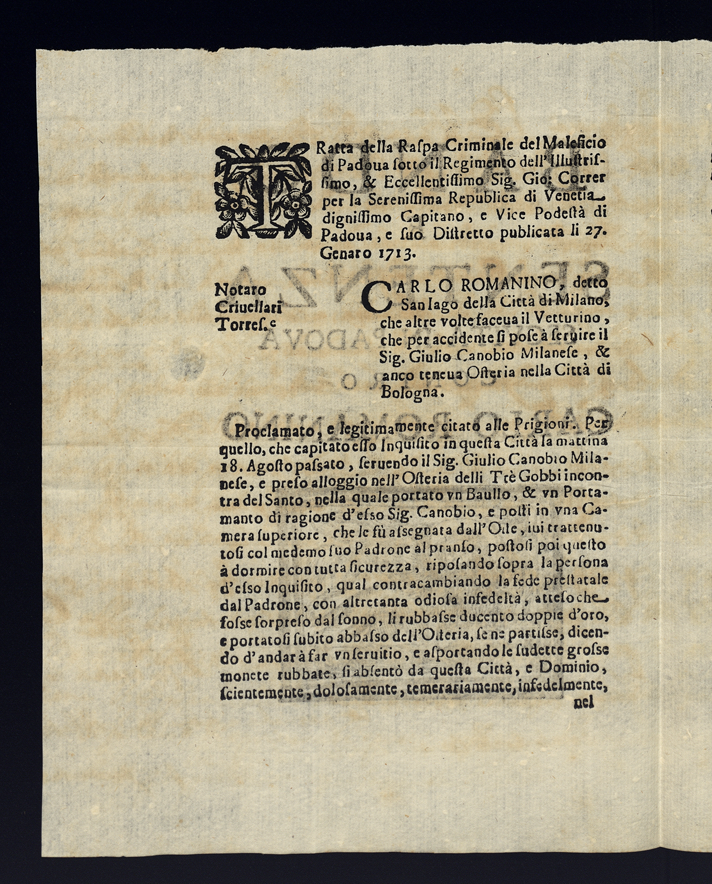 TRatta della Raspa Criminale del Maleficio
di Padoua sotto il Regimento dell'Illustris-
simo, & Eccellentissimo Sig. Gio: Correr
per la Serenissima Republica di Venetia
dignissimo Capitano, e Vice Podestà di
Padoua, e suo Distretto publicata li 27.
Genaro 1713.
Notaro
Criuellari
Torres.e
CARLO ROMANINO, detto
San Iago della Città di Milano,
che altre volte faceua il Vetturino,
che per accidente si pose à seruire il
Sig. Giulio Canobio Milanese, &
anco teneua Osteria nella Città di
Bologna.
Proclamato, e legitimamente citato alle Prigioni. Per
quello, che capitato esso Inquisito in questa Città la mattina
18. Agosto passato, seruendo il Sig. Giulio Canobio Mila-
nese, e preso alloggio nell'Osteria delli Trè Gobbi incon-
tra del Santo, nella quale portato vn Baullo, & vn Porta-
manto di ragione d'esso Sig. Canobio, e posti in vna Ca-
mera superiore, che le fù assegnata dall'Oste, iui trattenu-
tosi col medemo suo Padrone al pranso, postosi poi questo
à dormire con tutta sicurezza, riposando sopra la persona
d'esso Inquisito, qual contracambiando la fede prestatale
dal Padrone, con altretanta odiosa infedeltà, atteso che
fosse sorpreso dal sonno, li rubbasse ducento doppie d'oro,
e portatosi subito abbasso dell'Osteria, se ne partisse, dicen-
do d'andar à far vn seruitio, e asportando le sudette grosse
monete rubbate, si absentò da questa Città, e Dominio,
scientemente, dolosamente, temerariamente, infedelmente,
nel